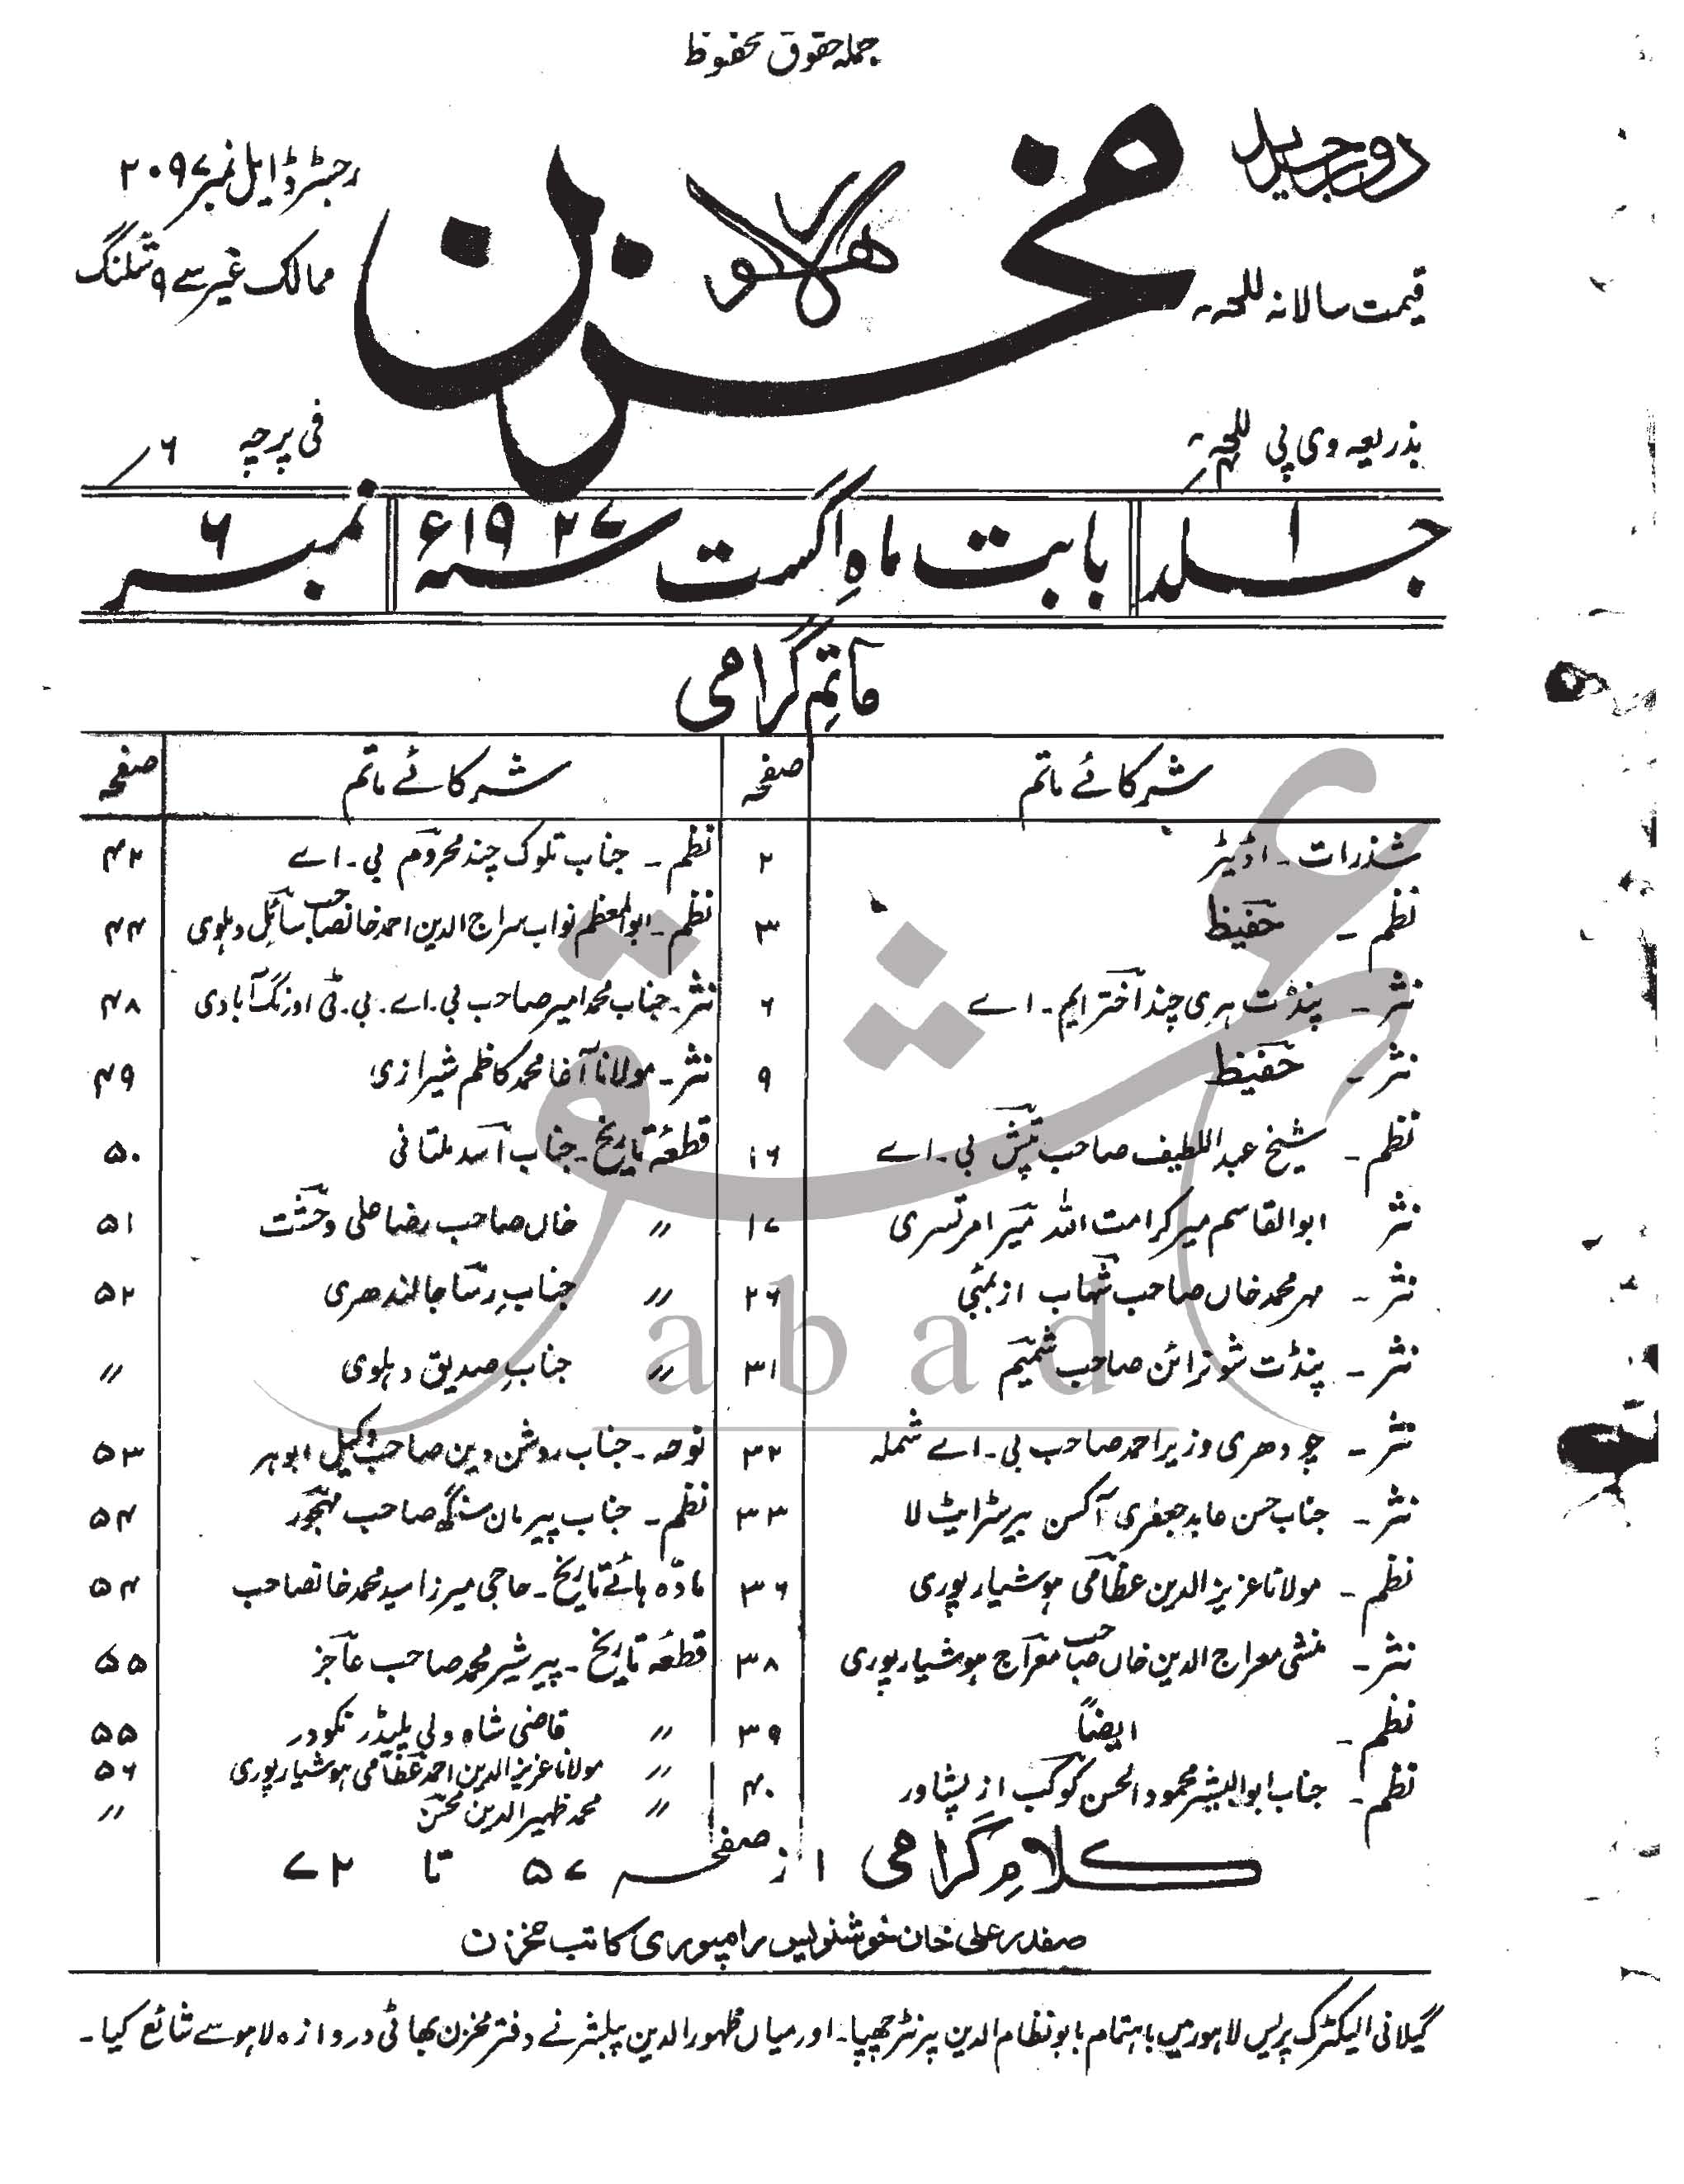 جملہ حقوق محفوظ
دورِ جدید
مخزن
لاہور
رجسٹرڈ ایل نمبر ۲۰۹۷
قیمت سالانہ للعہ
ممالک غیر سے ۹ شلنگ
بذریعہ وی پی للعہ
فی پرچہ ۶؍
جلد ۱
بابت ماہِ اگست سنہ ۱۹۲۷ء
نمبر ۶
ماتمِ گرامی
شرکائے ماتم صفحہ
شذرات ۔ اڈیٹر ۲
نظم ۔ حفیظ ۳
نثر ۔ پنڈت ہری چند اختر ایم ۔ اے ۶
نثر ۔ حفیظ ۹
نظم ۔ شیخ عبداللطیف صاحب تپش بی ۔ اے ۱۶
نثر ابوالقاسم میر کرامت اللہ میر امرتسری ۱۷
نثر ۔ مہر محمد خاں صاحب شہاب از بمبئی ۲۶
نثر ۔ پنڈت شو نرائن صاحب شمیم ۳۱
نثر ۔ چودھری وزیر احمد صاحب بی ۔ اے شملہ ۳۲
نثر ۔ جناب حسن عابد جعفری آکسن بیرسٹرایٹ لا ۳۳
نظم ۔ مولانا عزیز الدین عظامی ہوشیارپوری ۳۶
نثر ۔ منشی معراج الدین خاں صاحب معراج ہوشیارپوری ۳۸
نظم ۔ ایضاً ۳۹
نظم ۔ جناب ابوالبشر محمود الحسن کوکب از پشاور ۴۰
شرکائے ماتم صفحہ
نظم ۔ جناب تلوک چند محروم بی ۔ اے ۴۲
نظم ۔ ابوالمعظم نواب سراج الدین احمد خانصاحب سائل دہلوی ۴۴
نثر ۔ جناب محمد امیر صاحب بی ۔ اے ۔ بی ۔ ٹی اورنگ آبادی ۴۸
نثر ۔ مولانا آغا محمد کاظم شیرازی ۴۹
قطعۂ تاریخ ۔ جناب اسد ملتانی ۵۰
〃 خاں صاحب رضا علی وحشت ۵۱
〃 جنابِ رسا جالندھری ۵۲
〃 جنابِ صدیق دہلوی 〃
نوحہ ۔ جناب روشن دین صاحب وکیل ابوہر ۵۳
نظم ۔ جناب پیر مان سنگھ صاحب مہجور ۵۴
مادّہ ہائے تاریخ ۔ حاجی میرزا سید محمد خانصاحب ۵۴
قطعۂ تاریخ ۔ پیر شیر محمد صاحب عاجز ۵۵
〃 قاضی شاہ ولی پلیڈر نکودر ۵۵
〃 مولانا عزیز الدین احمد عظامی ہوشیارپوری ۵۶
〃 محمد ظہیر الدین محسن 〃
کلامِ گرامی از صفحہ ۵۷ تا ۷۲
صفدر علی خان خوشنویس رامپوری کاتب مخزن
گیلانی الیکٹرک پریس لاہور میں باہتمام بابو نظام الدین پرنٹر چھپا ۔ اور میاں ظہور الدین پبلشر نے دفتر مخزن بھاٹی دروازہ لاہور سے شائع کیا ۔
عشق
abad